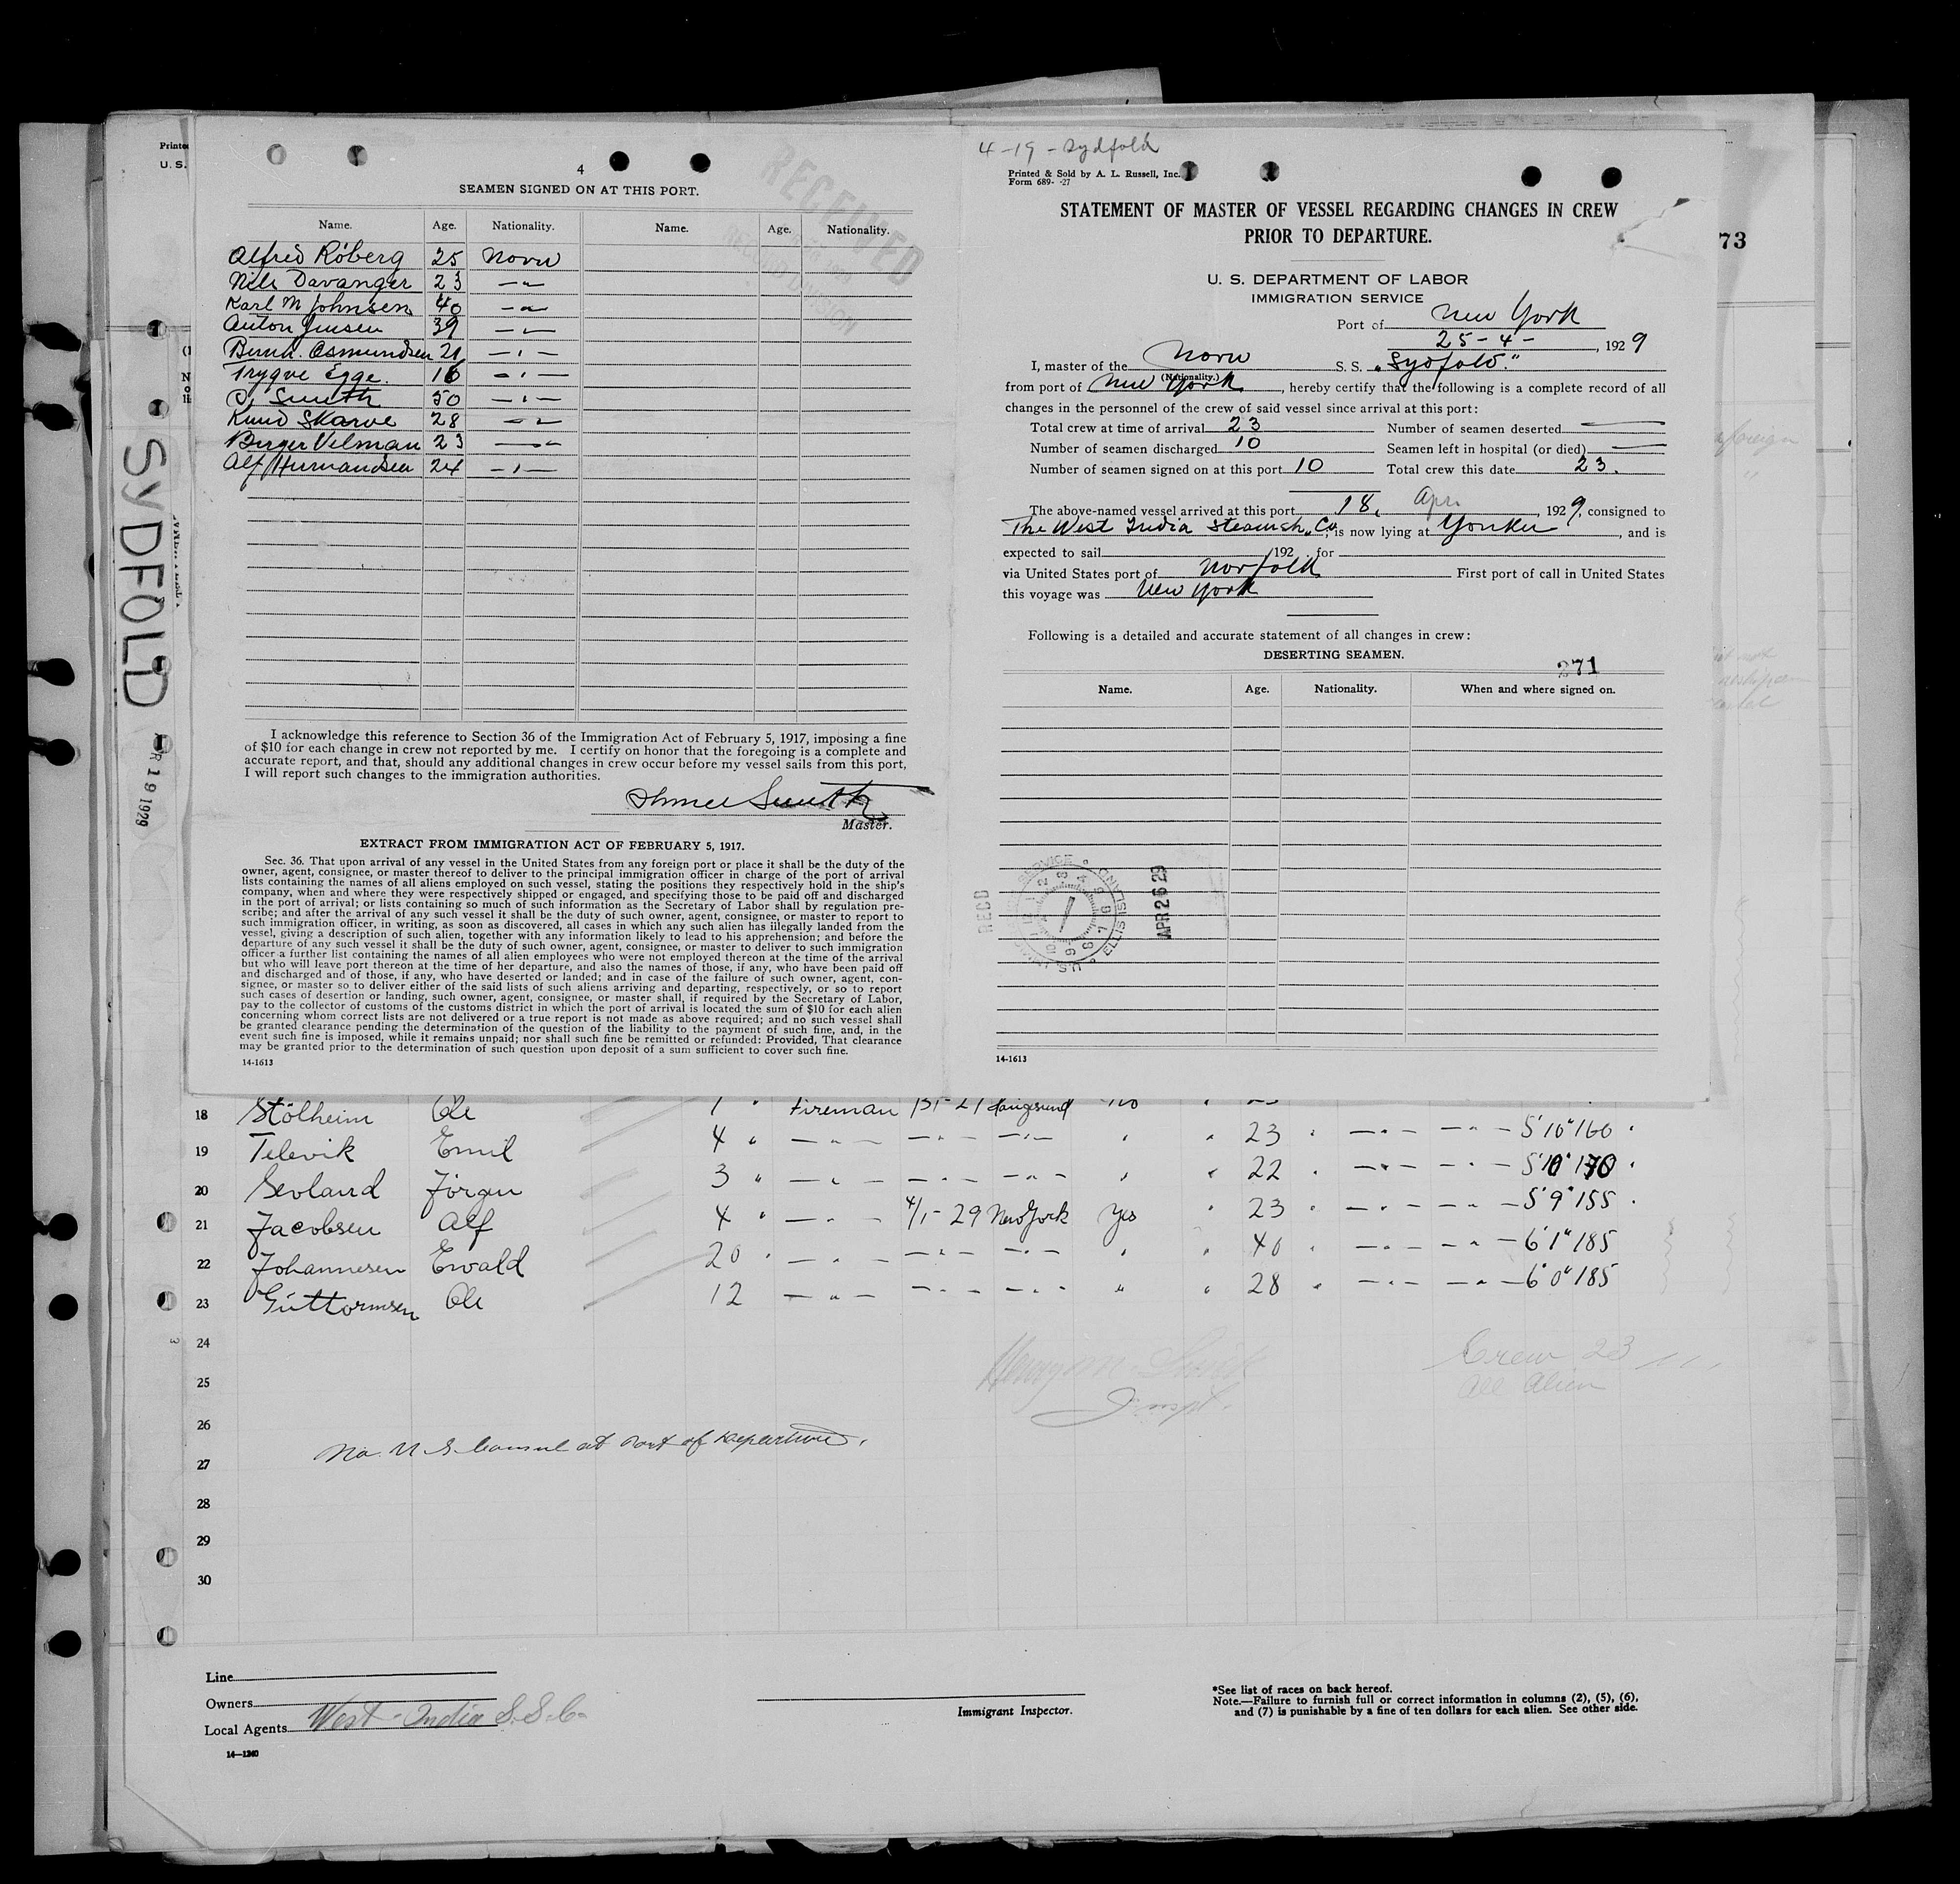 4
SEAMEN SIGNED ON AT THIS PORT.
Name. Age. Nationality. Name. Age. Nationality.
Alfred Röberg 25 Norw
Nils Davanger 23 — " —
Karl M Johnsen 40 — " —
Anton Jensen 39 — " —
Bernh. Osmundsen 21 — " —
Trygve Egge. 16 — " —
O, Smith 50 — " —
Knud Skarve 28 — " —
Birger Velman 23 — " —
Alf Hermandsen 24 — " —
RECEIVED
I acknowledge this reference to Section 36 of the Immigration Act of February 5, 1917, imposing a fine
of $10 for each change in crew not reported by me. I certify on honor that the foregoing is a complete and
accurate report, and that, should any additional changes in crew occur before my vessel sails from this port,
I will report such changes to the immigration authorities.
Smith
Master.
EXTRACT FROM IMMIGRATION ACT OF FEBRUARY 5, 1917.
Sec. 36. That upon arrival of any vessel in the United States from any foreign port or place it shall be the duty of the
owner, agent, consignee, or master thereof to deliver to the principal immigration officer in charge of the port of arrival
lists containing the names of all aliens employed on such vessel, stating the positions they respectively hold in the ship's
company, when and where they were respectively shipped or engaged, and specifying those to be paid off and discharged
in the port of arrival; or lists containing so much of such information as the Secretary of Labor shall by regulation pre-
scribe; and after the arrival of any such vessel it shall be the duty of such owner, agent, consignee, or master to report to
such immigration officer, in writing, as soon as discovered, all cases in which any such alien has illegally landed from the
vessel, giving a description of such alien, together with any information likely to lead to his apprehension; and before the
departure of any such vessel it shall be the duty of such owner, agent, consignee, or master to deliver to such immigration
officer a further list containing the names of all alien employees who were not employed thereon at the time of the arrival
but who will leave port thereon at the time of her departure, and also the names of those, if any, who have been paid off
and discharged and of those, if any, who have deserted or landed; and in case of the failure of such owner, agent, con-
signee, or master so to deliver either of the said lists of such aliens arriving and departing, respectively, or so to report
such cases of desertion or landing, such owner, agent, consignee, or master shall, if required by the Secretary of Labor,
pay to the collector of customs of the customs district in which the port of arrival is located the sum of $10 for each alien
concerning whom correct lists are not delivered or a true report is not made as above required; and no such vessel shall
be granted clearance pending the determination of the question of the liability to the payment of such fine, and, in the
event such fine is imposed, while it remains unpaid; nor shall such fine be remitted or refunded: Provided, That clearance
may be granted prior to the determination of such question upon deposit of a sum sufficient to cover such fine.
14-1613
4-19-Sydfold
Printed & Sold by A. L. Russell, Inc.
Form 689- -27
STATEMENT OF MASTER OF VESSEL REGARDING CHANGES IN CREW
PRIOR TO DEPARTURE.
73
U. S. DEPARTMENT OF LABOR
IMMIGRATION SERVICE
Port of New York
25-4-, 1929
I, master of the Norw S. S. „Sydfold."
(Nationality.)
from port of New York, hereby certify that the following is a complete record of all
changes in the personnel of the crew of said vessel since arrival at this port:
Total crew at time of arrival 23 Number of seamen deserted —
Number of seamen discharged 10 Seamen left in hospital (or died) —
Number of seamen signed on at this port 10 Total crew this date 23.
The above-named vessel arrived at this port 18, Apr. 1929, consigned to
The West India Steamsh. Co, is now lying at Yonker, and is
expected to sail 192 . for
via United States port of Norfolk First port of call in United States
this voyage was New York
Following is a detailed and accurate statement of all changes in crew:
DESERTING SEAMEN.
271
Name. Age. Nationality. When and where signed on.
RECD
U.S. ELLIS ISLAND SERVICE
APR 26 29
14-1613
Printed
U. S.
SYDFOLD
R 19 1929
18 Stölheim Ole Fireman Haugesund no
19 Televik Emil 4 " — " — — " — — " — " " 23 " — " — — " — 5'10" 160
20 Sevland Jörgen 3 " — " — — " — — " — " " 22 " — " — — " — 5'10" 170
21 Jacobsen Alf 4 " — " — 4/1-29 New York Yes " 23 " — " — — " — 5'9" 155
22 Johannesen Ewald 20 " — " — — " — — " — " " 40 " — " — — " — 6'1" 185
23 Guttormsen Ole 12 — " — — " — — " — " " 28 " — " — — " — 6'0" 185
24
Crew 23
25
All Alien
26
No U S Consul at Port of Departure.
27
28
29
30
Line
Owners
Local Agents West-India S.S.Co
Immigrant Inspector.
*See list of races on back hereof.
Note.—Failure to furnish full or correct information in columns (2), (5), (6),
and (7) is punishable by a fine of ten dollars for each alien. See other side.
14—1240